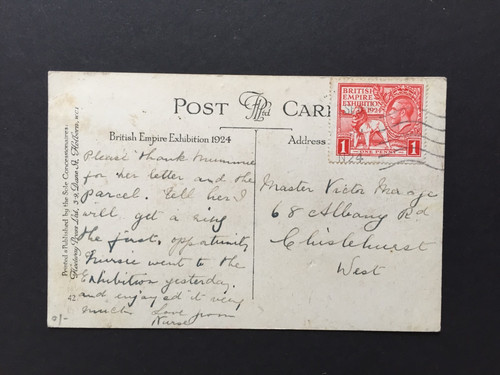 POST CARD
British Empire Exhibition 1924
Address
BRITISH
EMPIRE
EXHIBITION
1924
1 ONE PENNY 1
1924
Please thank Mummie
for her letter and the
Parcel. Tell her I
will get a ring
the first opportunity
went to the
Exhibition yesterday
and enjoyed it very
much Love from
Nurse
Master Victor
68 Albany Rd
Chislehurst
West
Printed & Published by the Sole Concessionaires:
Fleetway Press Ltd. 3-9, Dane St. Holborn, W.C.1
42